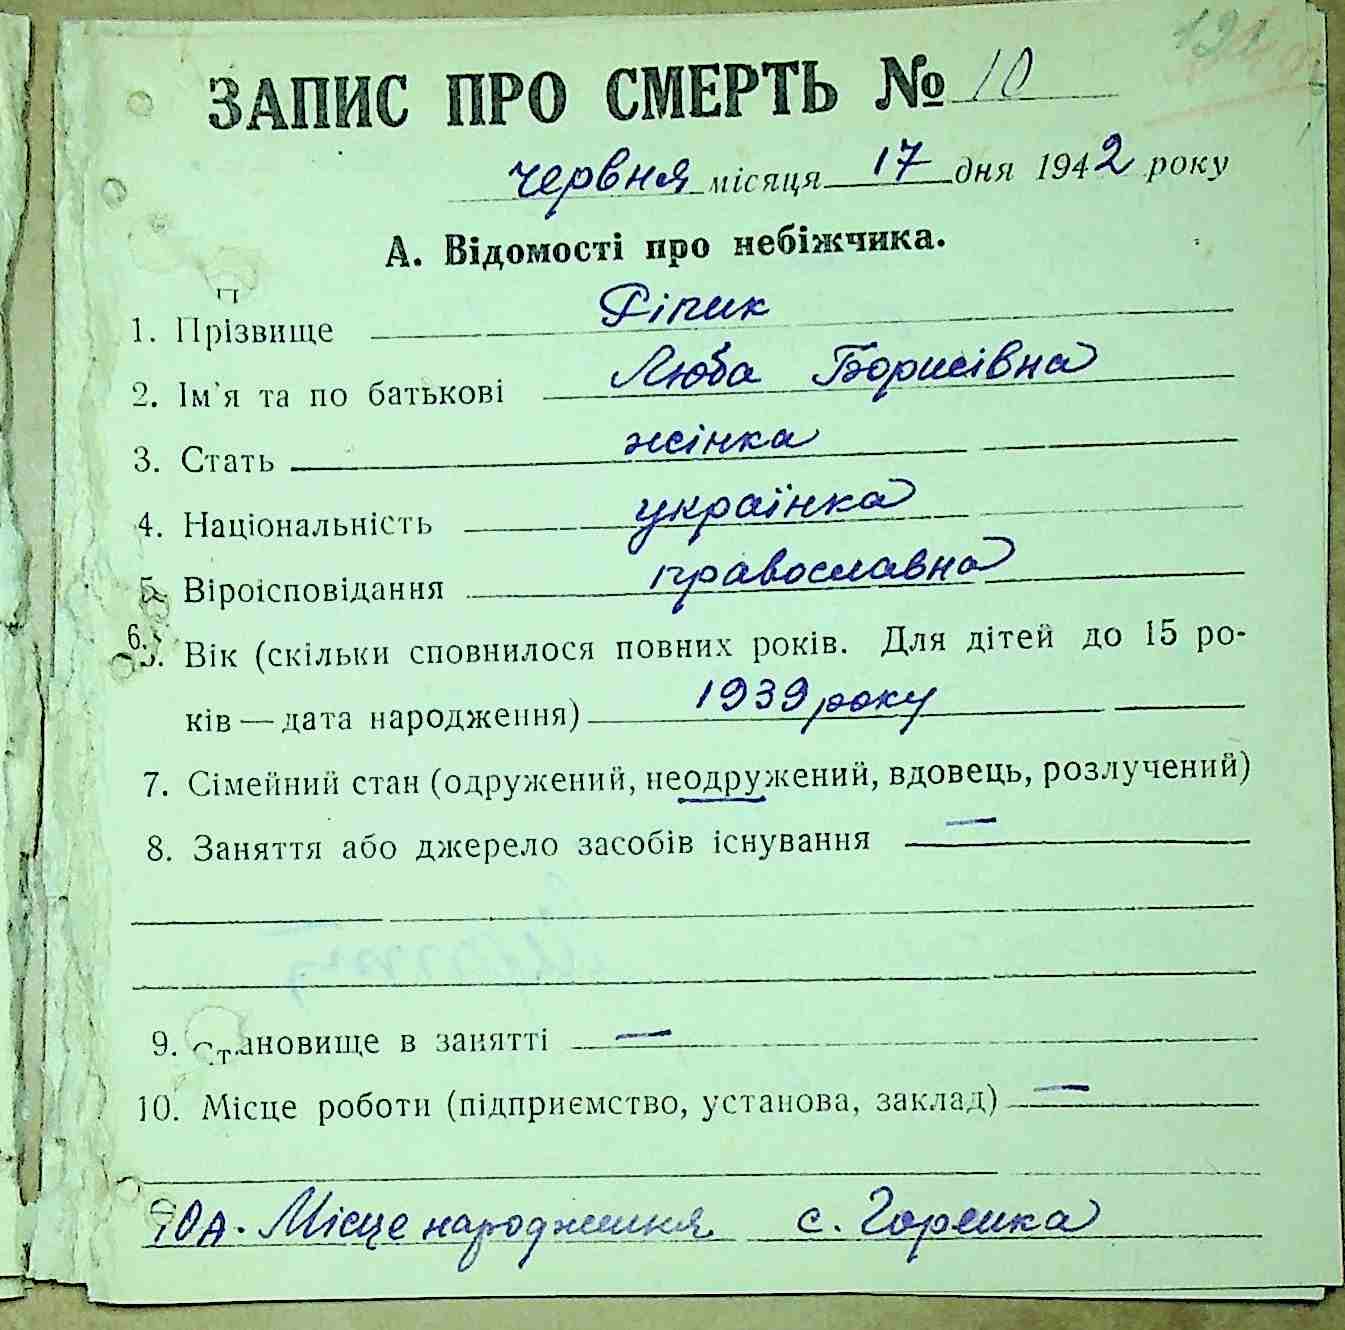 ЗАПИС ПРО СМЕРТЬ № 10
червня місяця 17 дня 1942 року
А. Відомості про небіжчика.
1. Прізвище Ріпик
2. Ім'я та по батькові Люба Борисівна
3. Стать жінка
4. Національність українка
5. Віроісповідання православна
6. Вік (скільки сповнилося повних років. Для дітей до 15 ро-
ків — дата народження) 1939 року
7. Сімейний стан (одружений, неодружений, вдовець, розлучений)
8. Заняття або джерело засобів існування —
9. Становище в занятті —
10. Місце роботи (підприємство, установа, заклад) —
10А. Місце народження с.